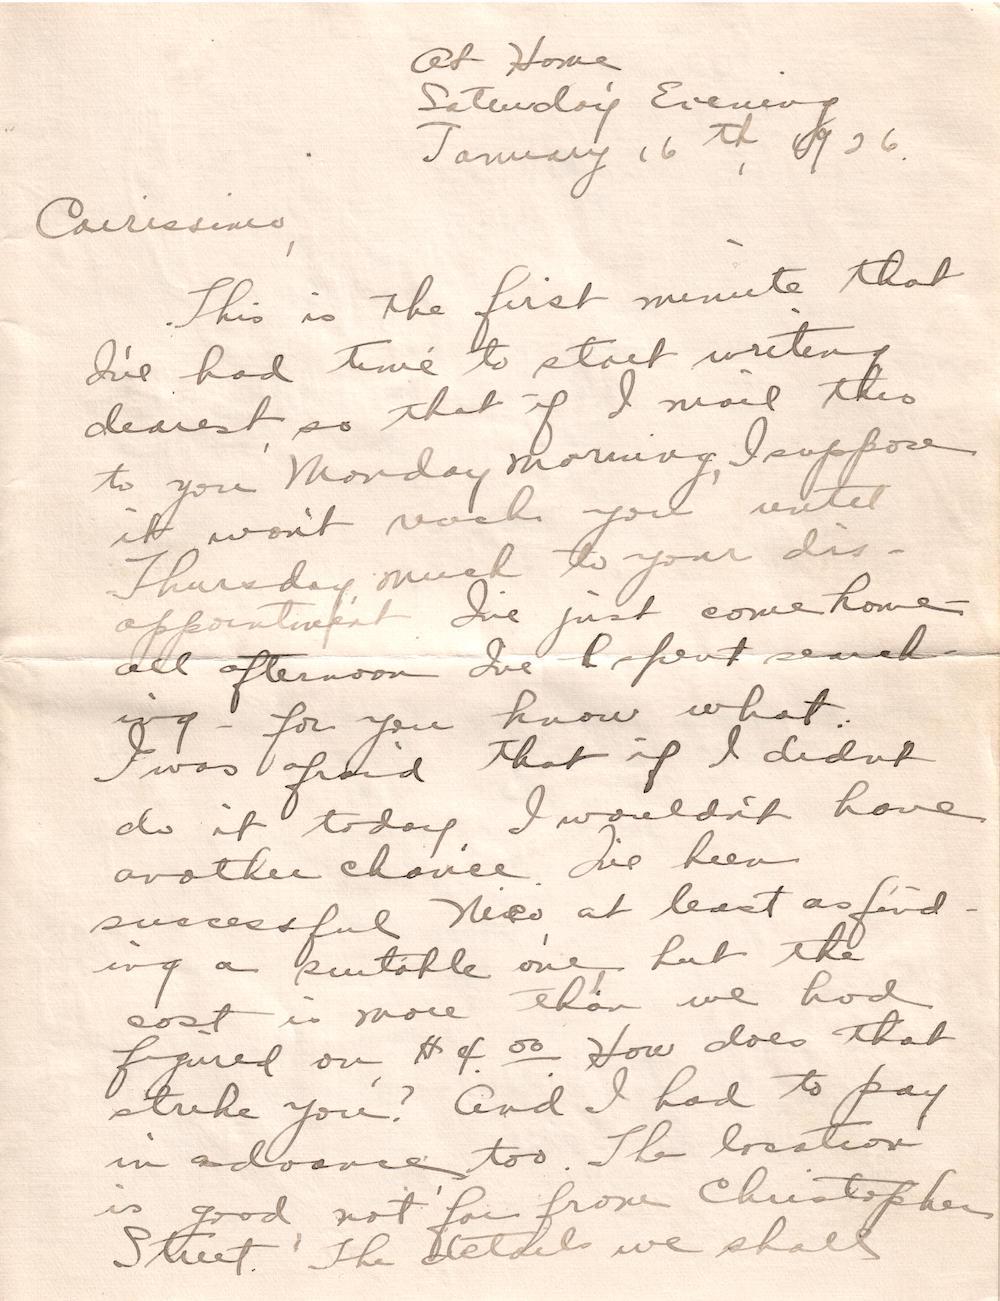 At Home
Saturday Evening
January 16th, 1926.
Carissimo,
This is the first minute that
I've had time to start writing
dearest, so that if I mail this
to you Monday morning, I suppose
it won't reach you until
Thursday, much to your dis-
appointment. I've just come home-
all afternoon I've spent search-
ing - for you know what.
I was afraid that if I didn't
do it today I wouldn't have
another chance. I've been
successful Nico, at least as find-
ing a suitable one, but the
cost is more than we had
figured on, $4.00. How does that
strike you? And I had to pay
in advance too. The location
is good not far from Christopher
Street. The details we shall